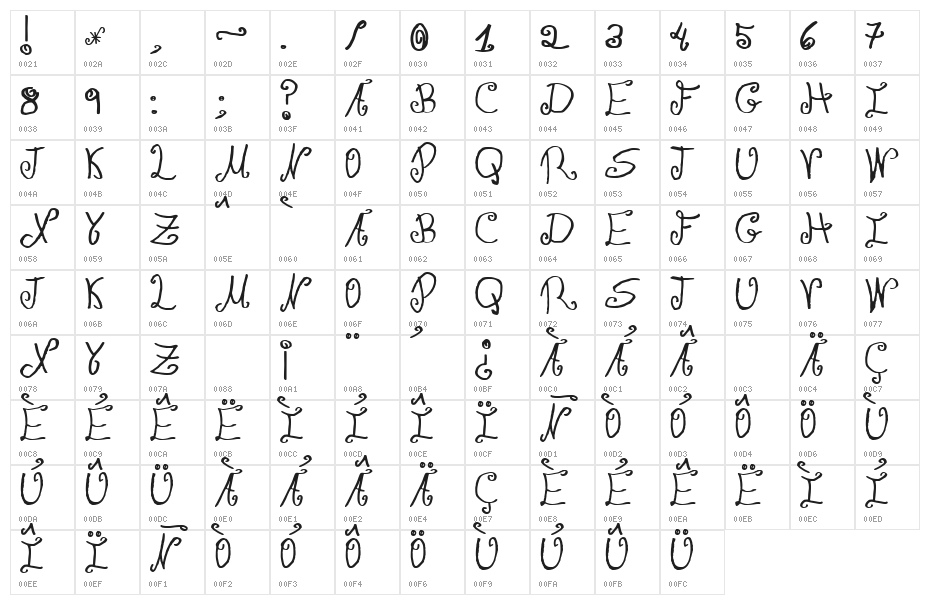 ! * , ~ . / 0 1 2 3 4 5 6 7
0021 002A 002C 002D 002E 002F 0030 0031 0032 0033 0034 0035 0036 0037
8 9 : ; ? A B C D E F G H I
0038 0039 003A 003B 003F 0041 0042 0043 0044 0045 0046 0047 0048 0049
J K L M N O P Q R S T U V W
004A 004B 004C 004D 004E 004F 0050 0051 0052 0053 0054 0055 0056 0057
X Y Z ^ ` A B C D E F G H I
0058 0059 005A 005E 0060 0061 0062 0063 0064 0065 0066 0067 0068 0069
J K L M N O P Q R S T U V W
006A 006B 006C 006D 006E 006F 0070 0071 0072 0073 0074 0075 0076 0077
X Y Z ¡ ¨ ´ ¿ À Á Â Ä Ç
0078 0079 007A 0088 00A1 00A8 00B4 00BF 00C0 00C1 00C2 00C3 00C4 00C7
È É Ê Ë Ì Í Î Ï Ñ Ò Ó Ô Ö Ù
00C8 00C9 00CA 00CB 00CC 00CD 00CE 00CF 00D1 00D2 00D3 00D4 00D6 00D9
Ú Û Ü À Á Â Ä Ç È É Ê Ë Ì Í
00DA 00DB 00DC 00E0 00E1 00E2 00E4 00E7 00E8 00E9 00EA 00EB 00EC 00ED
Î Ï Ñ Ò Ó Ô Ö Ù Ú Û Ü
00EE 00EF 00F1 00F2 00F3 00F4 00F6 00F9 00FA 00FB 00FC